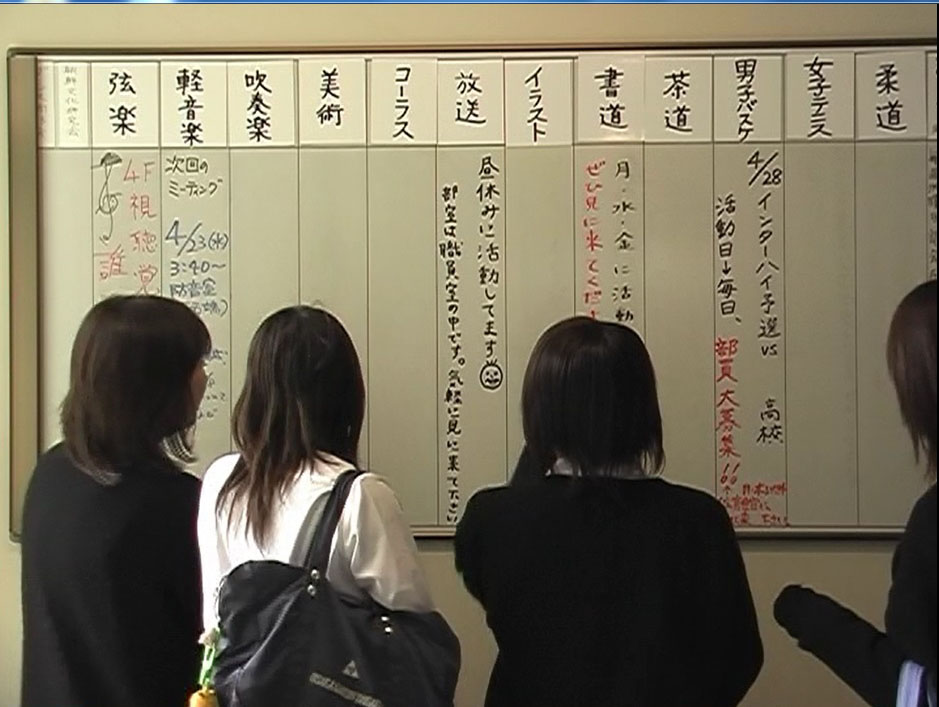 柔道
女子テニス
男子バスケ
4/28 インターハイ予選 vs 高校
活動日→毎日、部員大募集!!
茶道
書道
月・水・金に活動
ぜひ見に来てくださ
イラスト
放送
昼休みに活動してます
部室は職員室の中です。気軽に見に来て下さい
コーラス
美術
吹奏楽
軽音楽
次回の
ミーティング
4/23(水)
3:40〜
防音室
弦楽
4F視聴覚
誰
朝鮮文化研究会